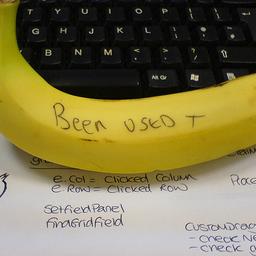 T Y U I O P { [ } ]
G H J K L
B N M
Alt Gr
Been USED T
e.Col = Clicked Column
e.Row = Clicked Row
SetfieldPanel
FindGridField
Place
CUSTOMDRAW
- CHECK NE
- CHECK